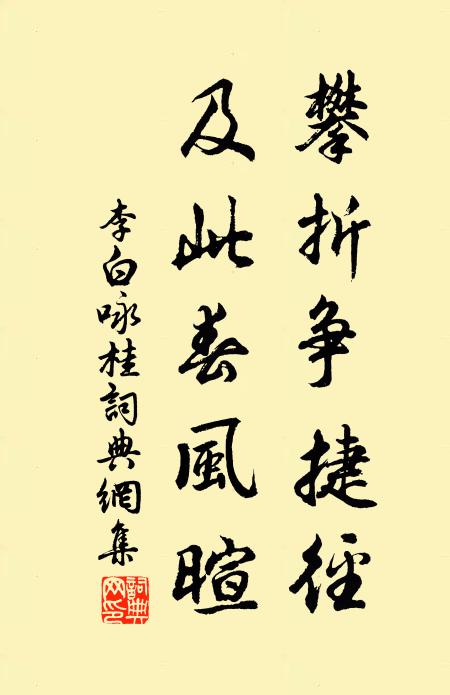 攀折争捷徑
及此春風暄
李白咏桂詞典網集
詞典网印